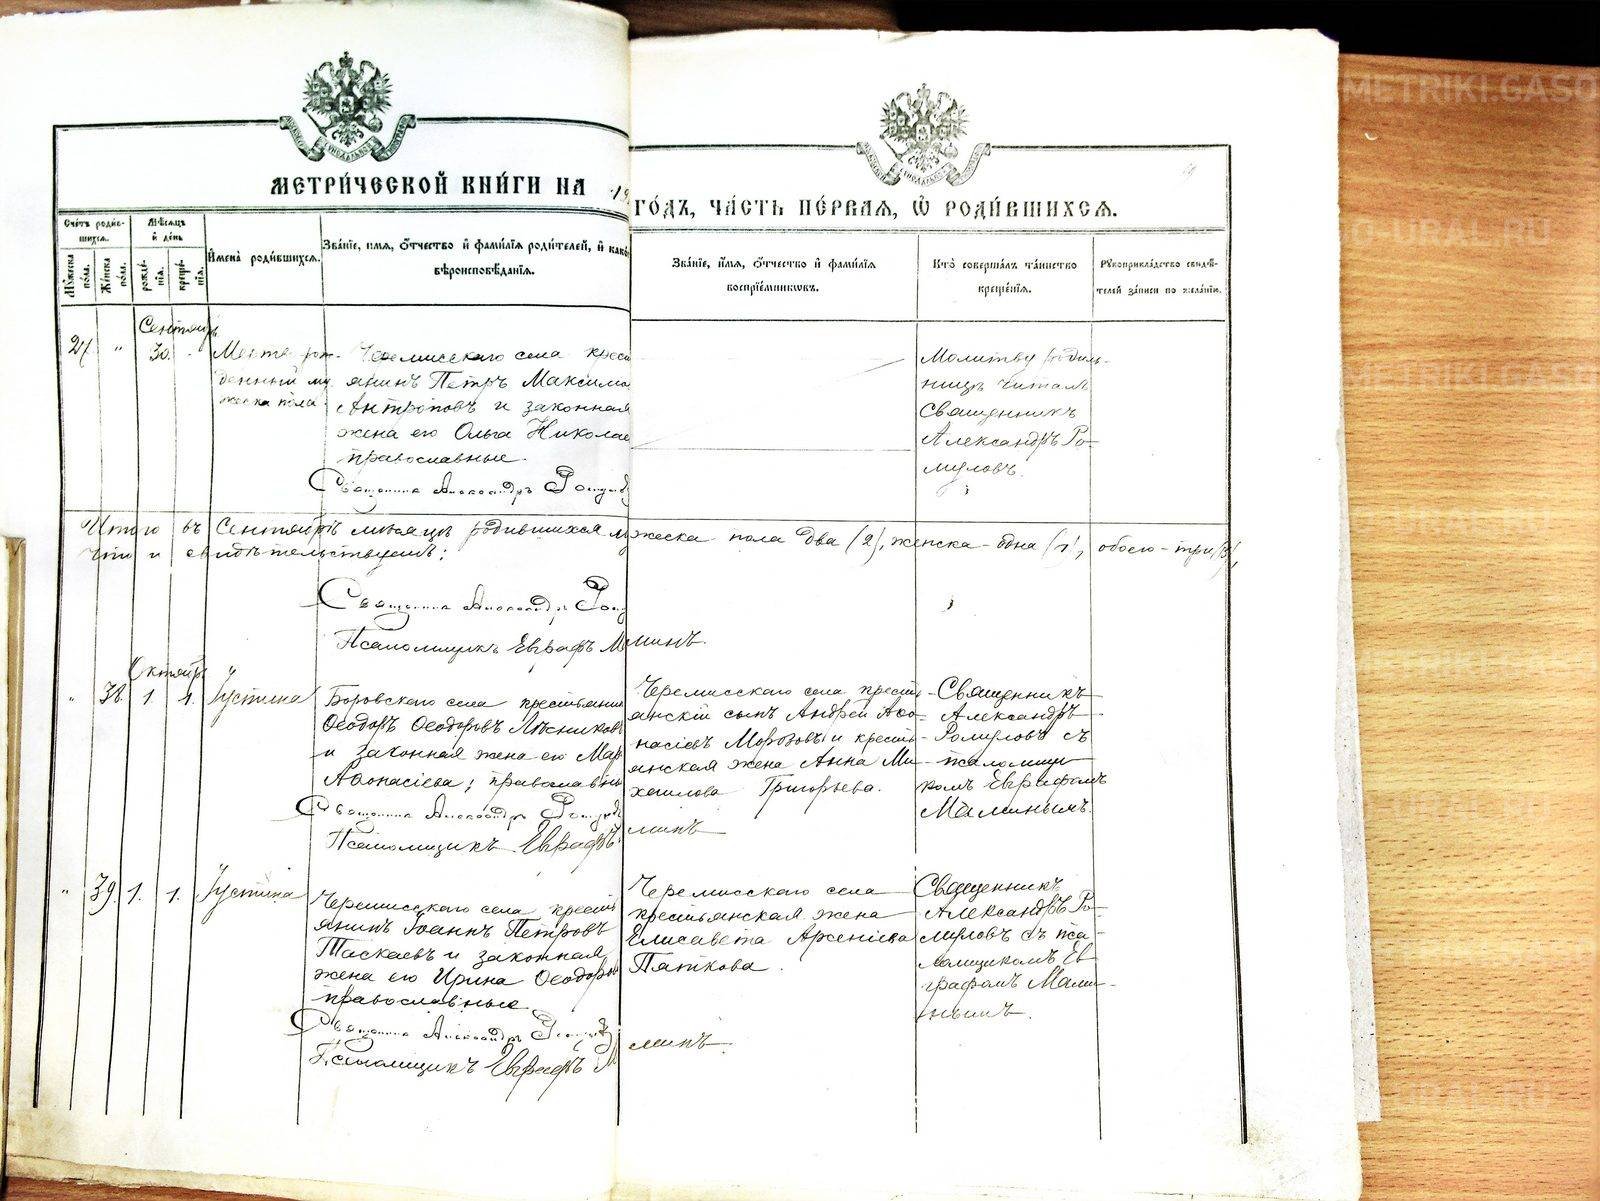 МЕТРИ́ЧЕСКОЙ КНИ́ГИ НА 19
ГО́ДЪ, ЧА́СТЬ ПЕ́РВАЯ, Ѡ҆ РОДИ́ВШИХСЯ.
Сче́тъ роди́в-
шихся.
Му́жеска
по́ла.
Же́нска
по́ла.
Мѣ́сяцъ
и҆ де́нь
рожде́-
нїя.
креще́-
нїя.
И҆мена̀ роди́вшихся.
Зва́нїе, и҆́мя, ѻ҆́тчество и҆ фами́лїя роди́телей, и҆ како́
вѣроисповѣ́данїя.
Зва́нїе, и҆́мя, ѻ҆́тчество и҆ фами́лїя
воспрїе́мниковъ.
Кто̀ соверша́лъ та́инство
креще́нїя.
Рукоприкла́дство свидѣ́-
телей за́писи по жела́нїю.
Сентябрь
27 " 30. -
Мертворож-
денный му
жеска пола
Черемисскаго села крест
янинъ Петръ Максимо
Антроповъ и законная
жена его Ольга Николае
православные.
Священникъ Александръ Ромулов
Молитву родиль-
ницѣ читалъ
Священникъ
Александръ Ро-
муловъ.
Итого въ Сентябрѣ мѣсяцѣ родившихся мужеска пола два (2), женска - одна (1), обоего - три (3),
что и свидѣтельствуемъ:
Священникъ Александръ Рому
Псаломщикъ Евграфъ Маминъ.
Октябрь
" 38. 1. 1.
Іустина
Боровского села крестьянинъ
Ѳеодоръ Ѳеодоровъ Лѣсниковъ
и законная жена его Мар
Аѳонасіева; православны
Священникъ Александръ Ромулов
Псаломщикъ Евграфъ
минъ
Черемисскаго села кресть-
янскій сынъ Андрей Аѳо-
насіевъ Морозовъ и кресть-
янская жена Анна Ми-
хаилова Григорьева.
Священникъ
Александръ
Ромуловъ съ
псаломщи-
комъ Евграфомъ
Маминымъ.
" 39. 1. 1.
Іустина
Черемисскаго села кресть
янинъ Іоаннъ Петровъ
Таскаевъ и законная
жена его Ирина Ѳеодоро
православные
Священникъ Александръ Ромулов
Псаломщикъ Евграфъ М
минъ.
Черемисскаго села
крестьянская жена
Елисавета Арсеніева
Пяткова.
Священникъ
Александръ Ро-
муловъ съ пса-
ломщикомъ Ев-
графомъ Мами-
нымъ.
METRIKI.GASO
SO-URAL.RU
METRIKI.GASO
O-URAL.RU
METRIKI.GASO
-URAL.RU
METRIKI.GASO
-URAL.RU